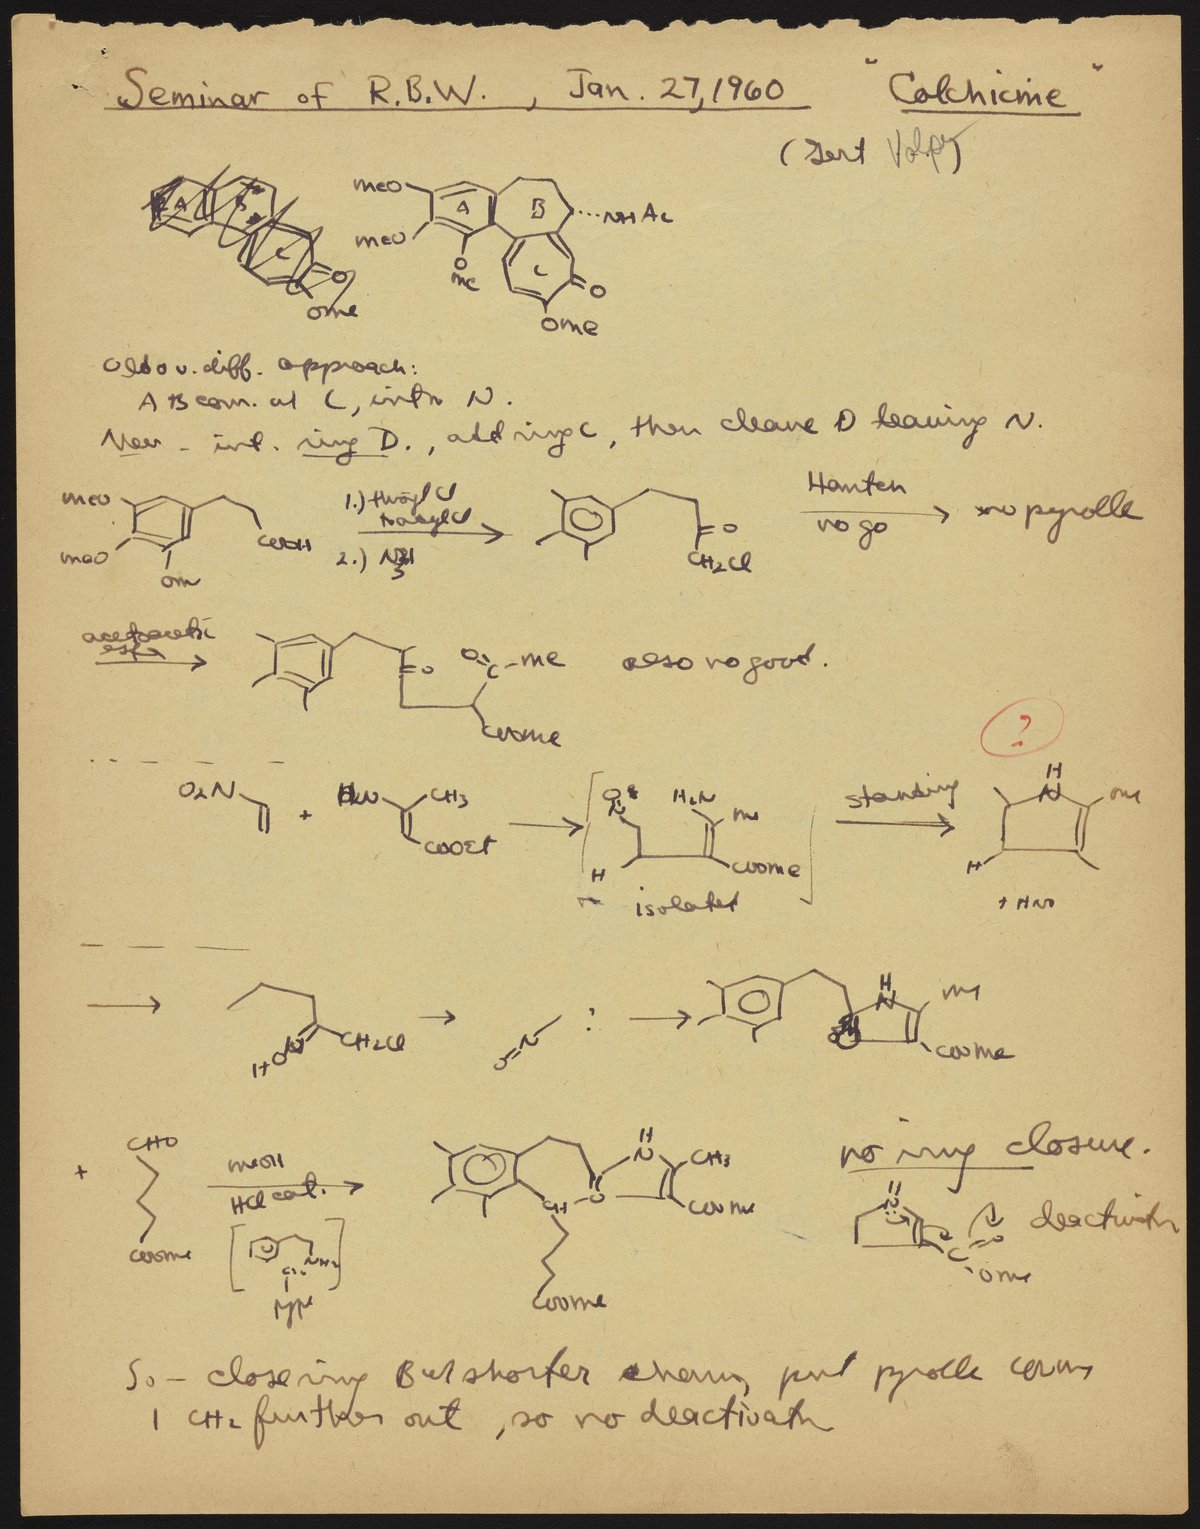 Seminar of R.B.W. , Jan. 27, 1960 "Colchicine"
(Gert Volpp)
A B C O OMe
MeO A B ...NHAc
MeO C O
O
Me
OMe
Old v. diff. approach:
A B com. at C, intr N.
New - int. ring D., add ring C, then cleave D leaving N.
MeO 1.) thionyl Cl Hantsch
oxalyl Cl O no go no pyrolle
MeO COOH 2.) CH2Cl
OMe
acetoacetic
ester O O C - Me also no good.
COOMe
?
O2N + H2N CH3 H2N Me standing H N Me
COOEt COOMe
H isolated H
+ HNO
HON CH2Cl O=N : H N Me
COOMe
+ CHO MeOH H N CH3 no ring closure.
HCl cat. CH COOMe N
COOMe NH2 C O deactivatn
type OMe
COOMe
So - close ring B w/ shorter chain, put pyrolle
1 CH2 further out , so no deactivatn